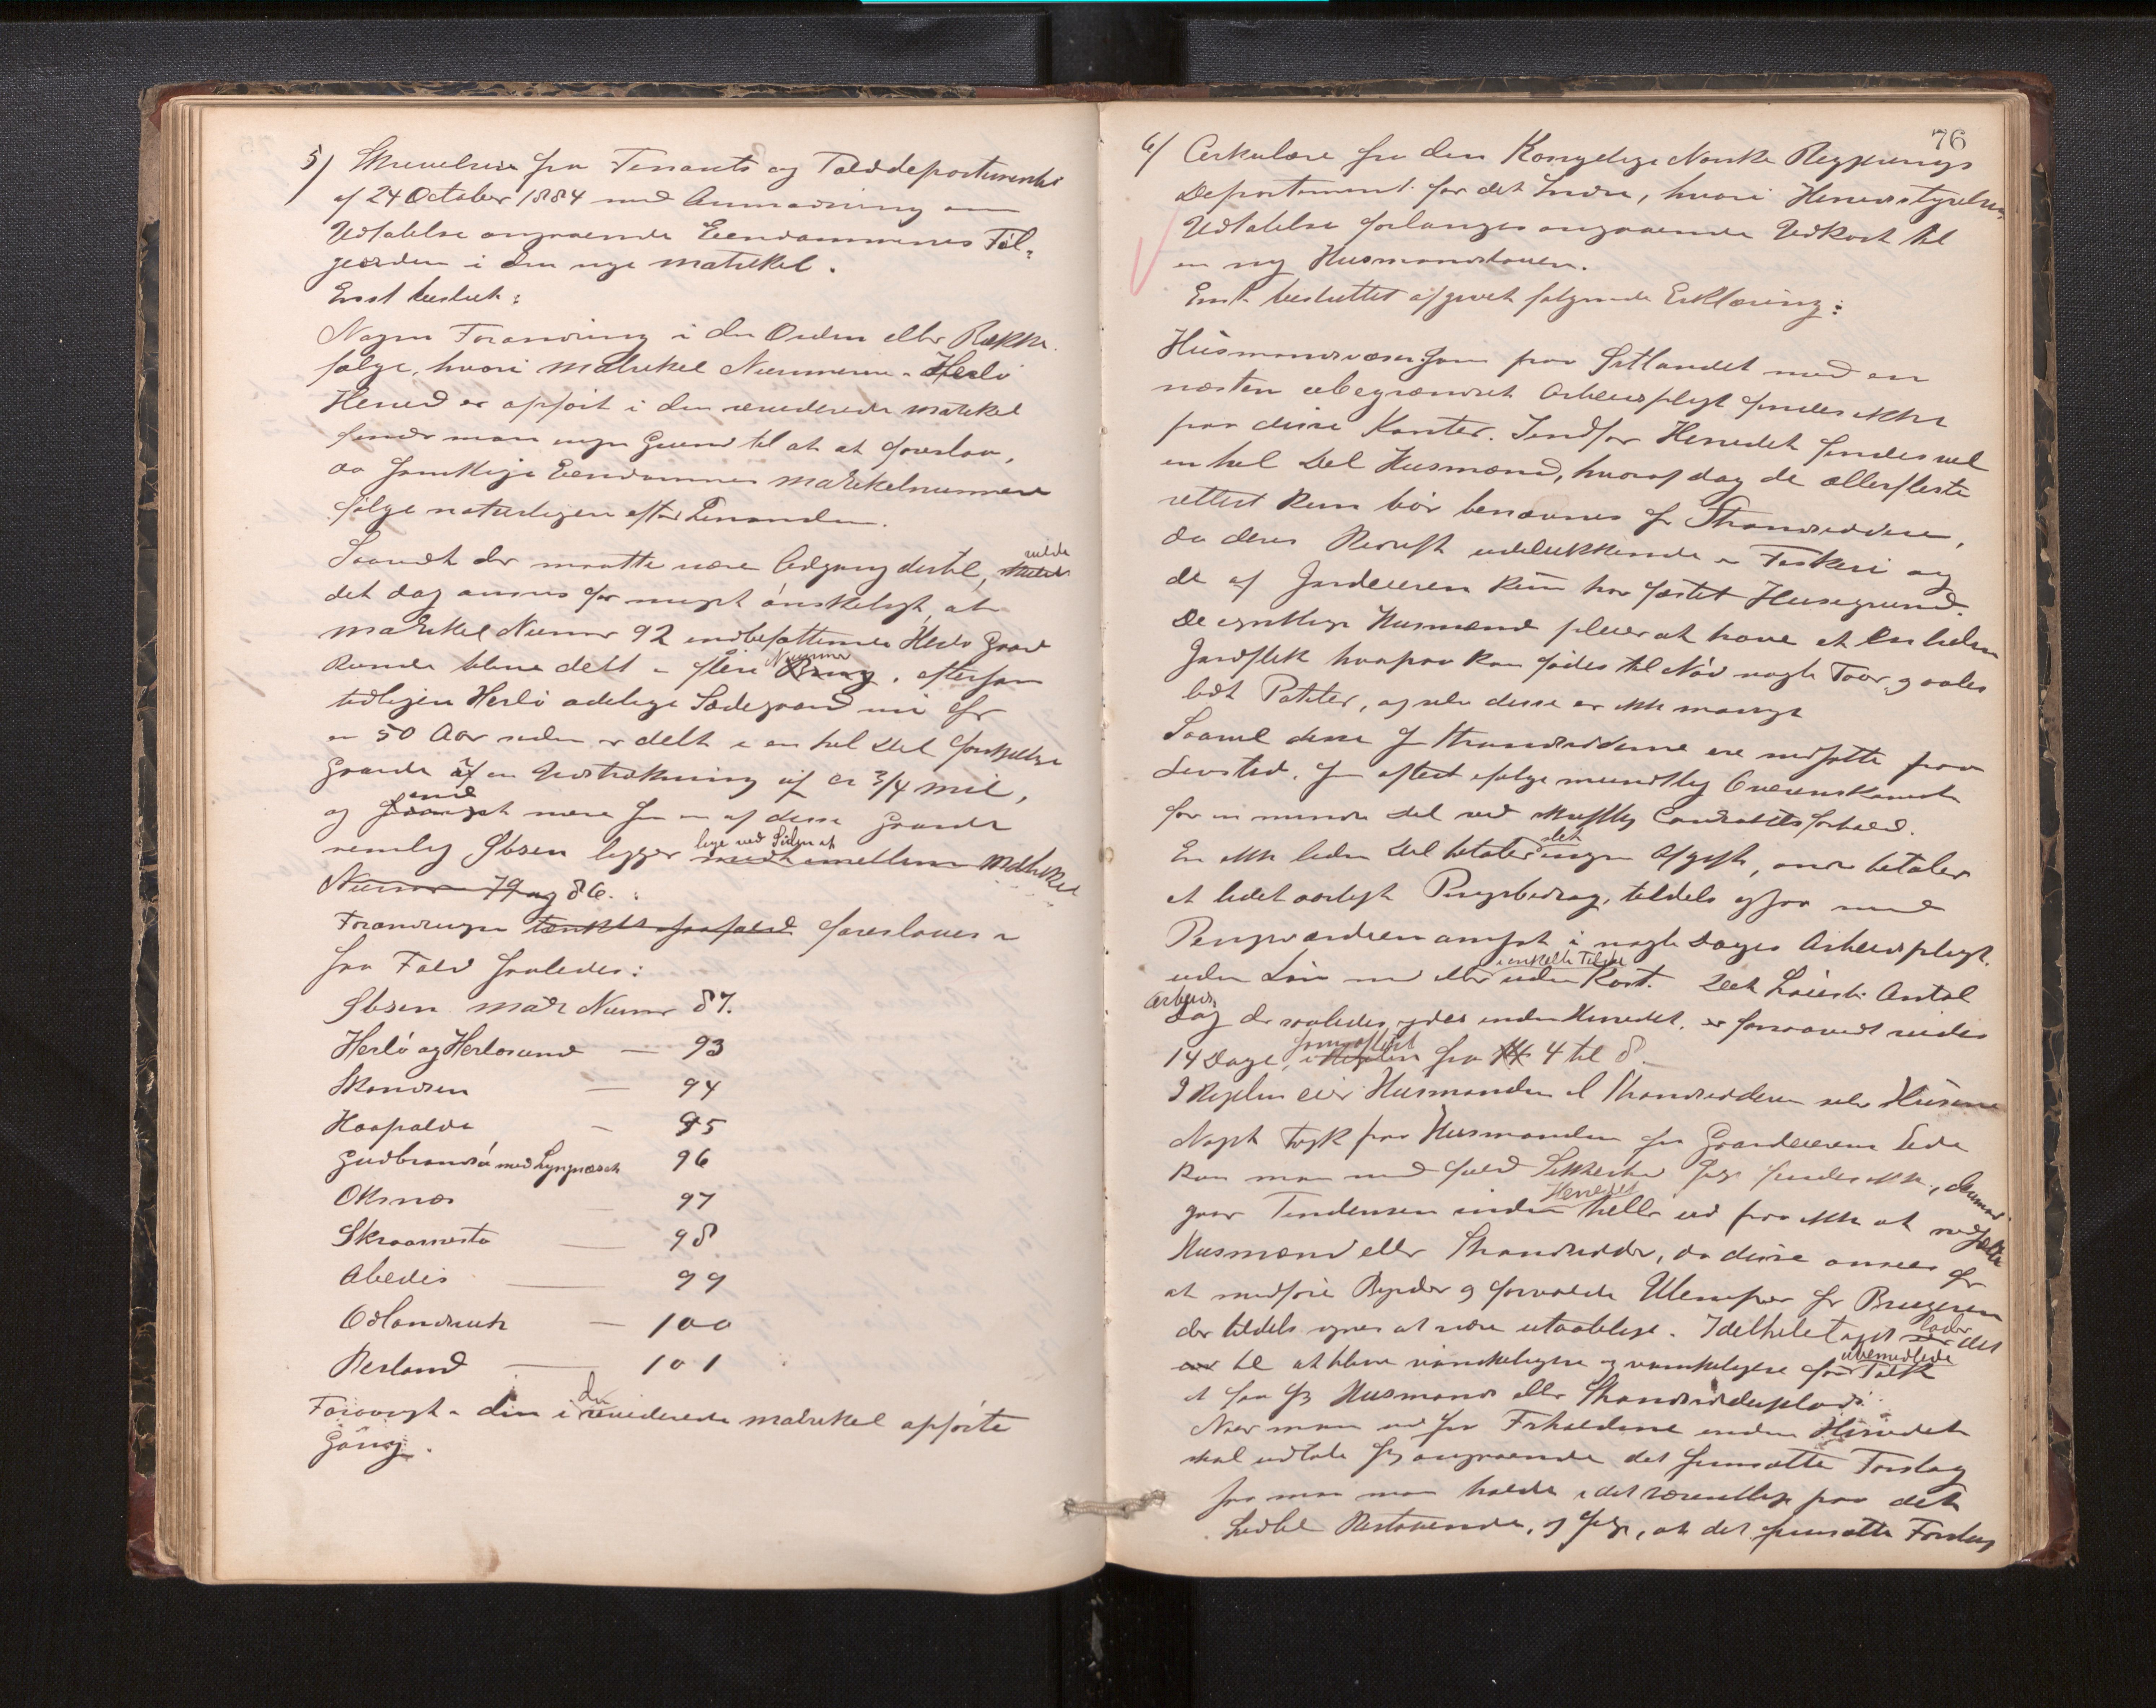 5/ Skrivelse fra Finants og Tolddepartementet
af 24 October 1884 med Anmodning om
Udtalelse angaaende Eiendommenes Føl-
georden i den nye Matrikel.
Enst besluttet:
Nogen Forandring i den Orden eller Række-
følge, hvori Matrikel Numerene i Herlø
Herred er opført i den reviderede Matrikel
finder man ingen Grund til at foreslaa,
da samtlige Eiendommes Matrikelnummere
følge naturligen efter hinanden.
Saavidt der maatte være Adgang dertil, vilde
det dog ansees for meget ønskeligt, at
Matrikel Numer 92 indbefattende Herlø Gaard
kunde blive delt i flere Numer, eftersom
tidligere Herlø adelige Sædegaard nu for
en 50 Aar siden er delt i en hel Del forskjellige
Gaarde af en Udstrækning af ca 3/4 Mil,
og end mere som en af disse Gaarde
nemlig Ibsen ligger lige ved Siden af midt imellem Matrikel
Numer 79 og 86.
Forandringen tænkt foreslaaes i
saa Fald saaledes:
Ibsen Matr Numer 87.
Herlø og Herløsund — 93
Skandsen — 94
Haapolden — 95
Gudbrandsø med Lyngnæset 96
Oksnæs — 97
Skraanesta — 98
Abedis — 99
Odlandsvik — 100
Reiland — 101
Forøvrigt i den i den reviderede Matrikel opførte
Gang.
76
6/ Cirkulære fra den Kongelige Norske Regjerings
Departement for det Indre, hvori Herredsstyrelsens
Udtalelse forlanges angaaende Udkast til
en ny Husmandslov.
Enst besluttet afgivet følgende Erklæring:
Husmandsvæsen som paa Østlandet med en
næsten ubegrændset Arbeidspligt findes ikke
paa disse Kanter. Indfor Herredet findes vel
en hel Del Husmænd, hvoraf dog de allerfleste
rettest kun bør benævnes for Strandsiddere,
da deres Bedrift udelukkende er Fiskeri og
de af Jordeieren kun har fæstet Husegrund.
De egentlige Husmænd pleier at have et lidet
Jordstyk hvorpaa kan fødes til Nød nogle Faar, og avles
lidt Poteter, og selv disse er ikke mange
Saavel disse som Strandsidderne ere nedsatte paa
Livstid, som oftest ifølge mundtlig Overenskomst
for en mindre Del ved skriftlig Contraktsforhold.
En ikke liden Del betaler slet ingen Afgift, andre betaler
et lidet aarligt Pengebidrag, tildels ogsaa med
Pengeværdien ansat i nogle Dages Arbeidspligt,
uden Løn med eller i enkelte Tilfælde uden Kost. Det høieste Antal
Arbeids
dag der saaledes ydes inden Herredet, er forsaavidt vides
14 Dage, som oftest i Regelen fra 4 til 8.
I Regelen eier Husmanden el Strandsidderen selv Husene
Noget Tryk paa Husmanden fra Gaardeierens Side
kan man med fuld Sikkerhed sige findes ikke, derimod
gaar Tendensen inden Herredet heller ud paa ikke at nedsætte
Husmænd eller Strandsiddere, da disse ansees for
at medføre Byrder og forvolde Ulemper for Brugeren
der tildels synes at være utaalelige. I det hele taget lader det
til at blive vanskeligere og vanskeligere for ubemidlede Folk
at faa sig Husmands eller Strandsidderplads.
Naar man nu fra Forholdene inden Herredet
skal udtale sig angaaende det fremsatte Forslag
saa maa man holde i det væsentlige paa det
hidtil Bestaaende, og sige, at det fremsatte Forslag